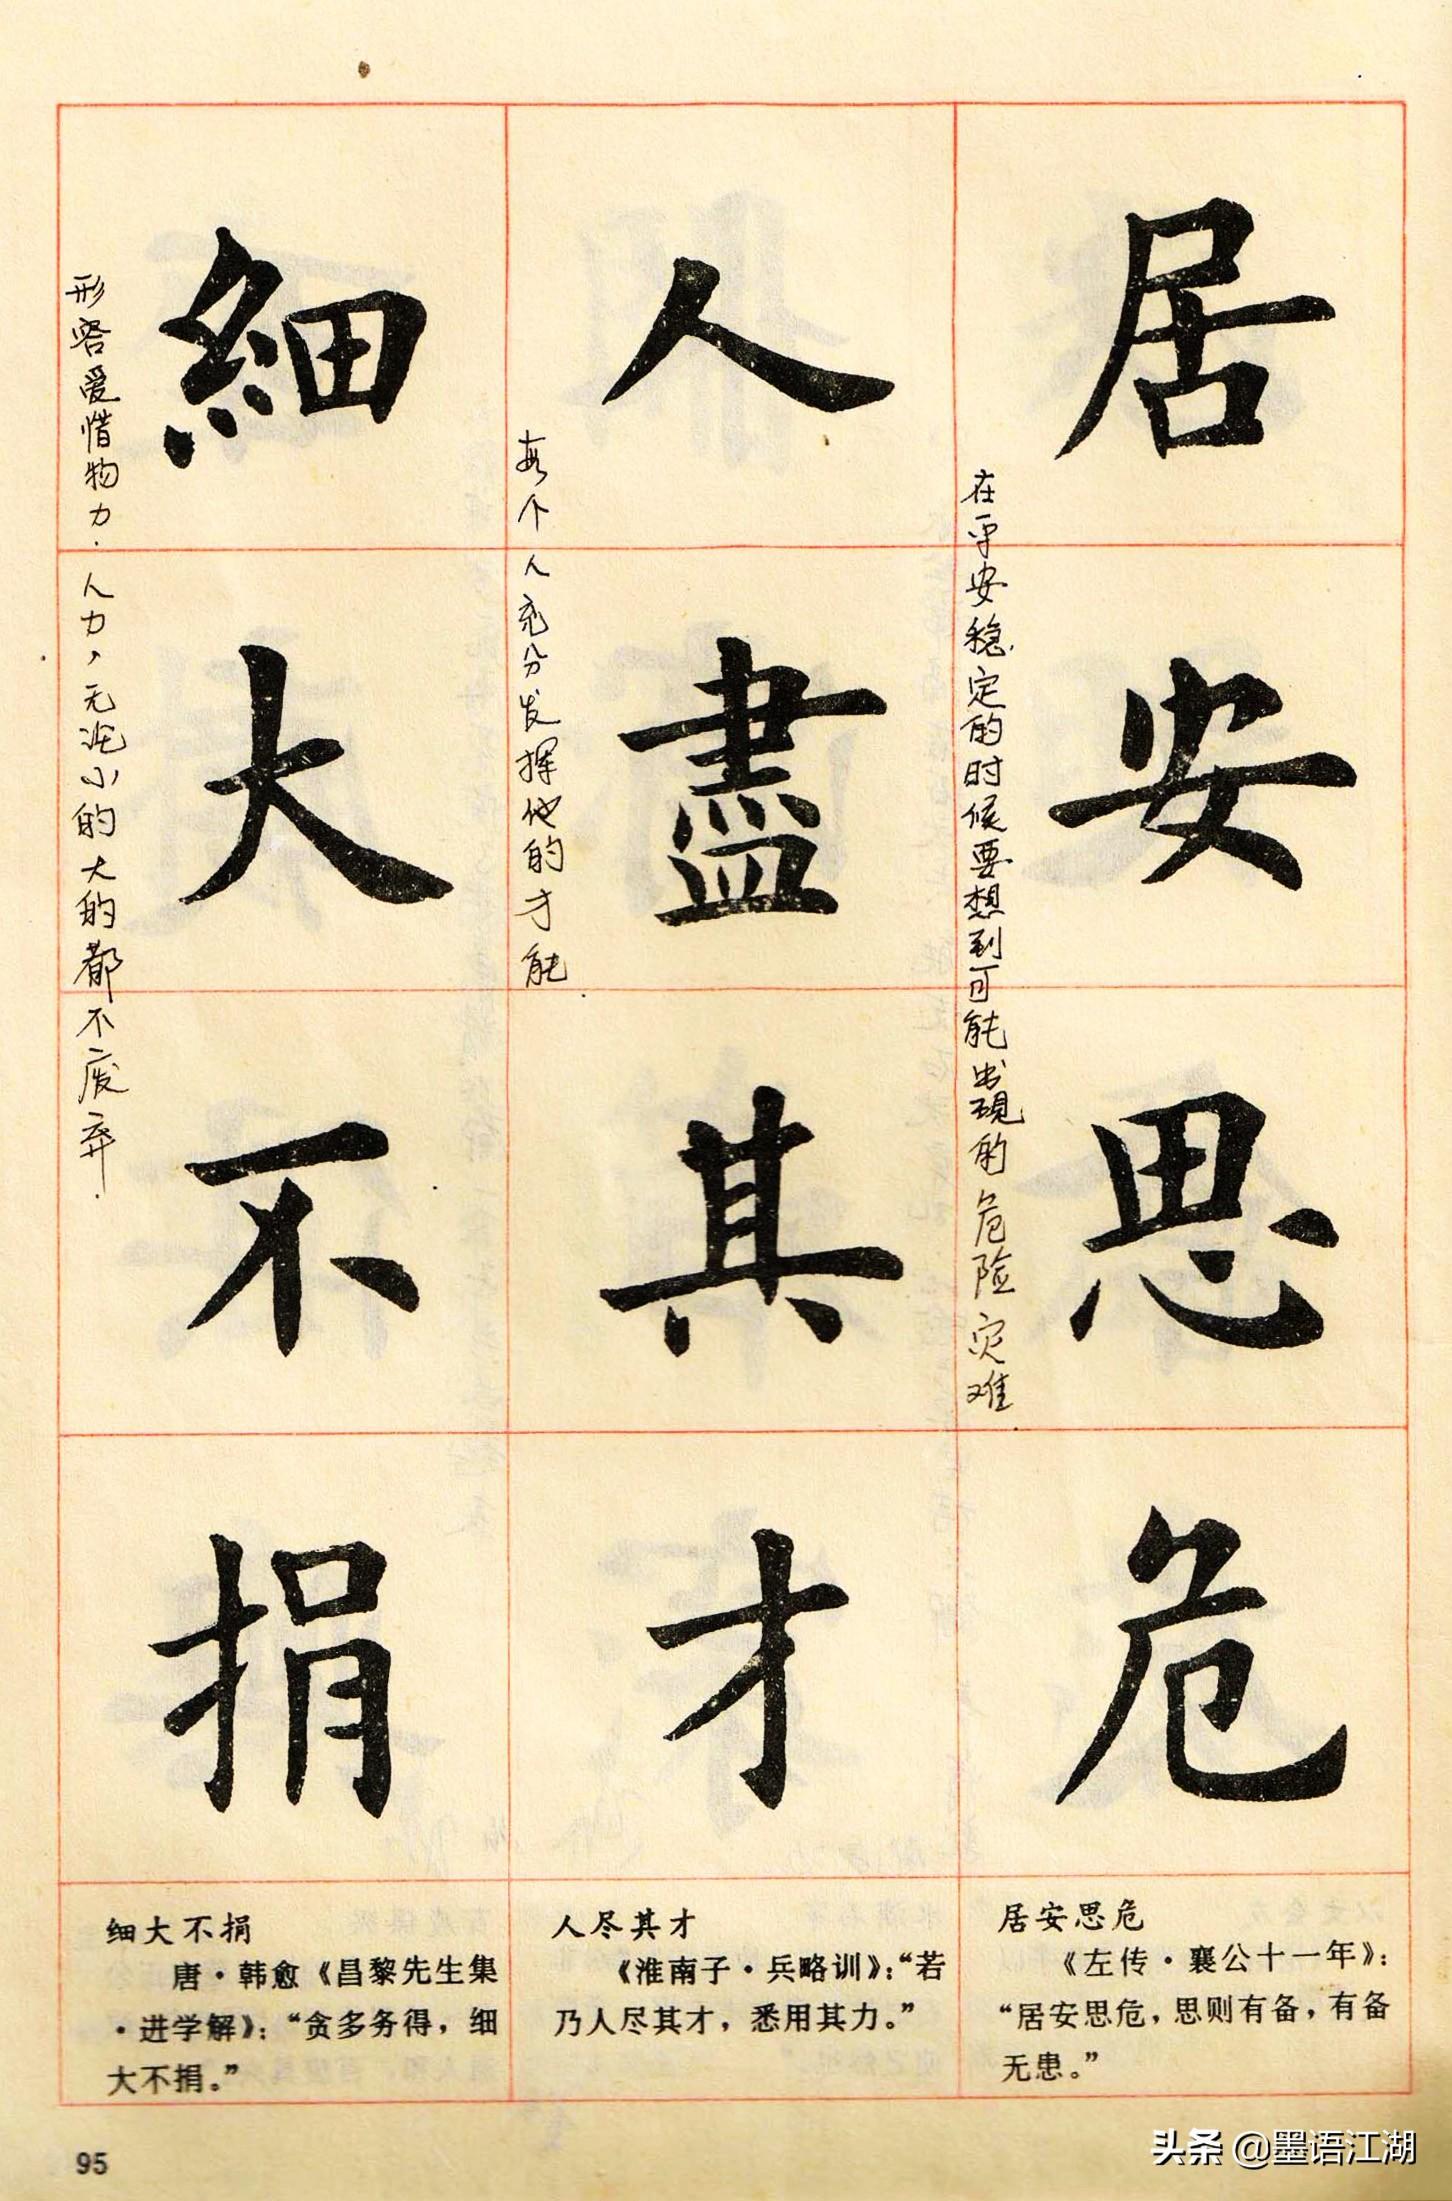 居安思危
在平安稳定的时候要想到可能出现的危险灾难
人盡其才
每个人充分发挥他的才能
細大不捐
形容爱惜物力.人力,无论小的大的都不废弃.
居安思危
《左传·襄公十一年》:
“居安思危,思则有备,有备
无患。”
人尽其才
《淮南子·兵略训》:“若
乃人尽其才,悉用其力。”
细大不捐
唐·韩愈《昌黎先生集
·进学解》:“贪多务得,细
大不捐。”
95
头条 @墨语江湖